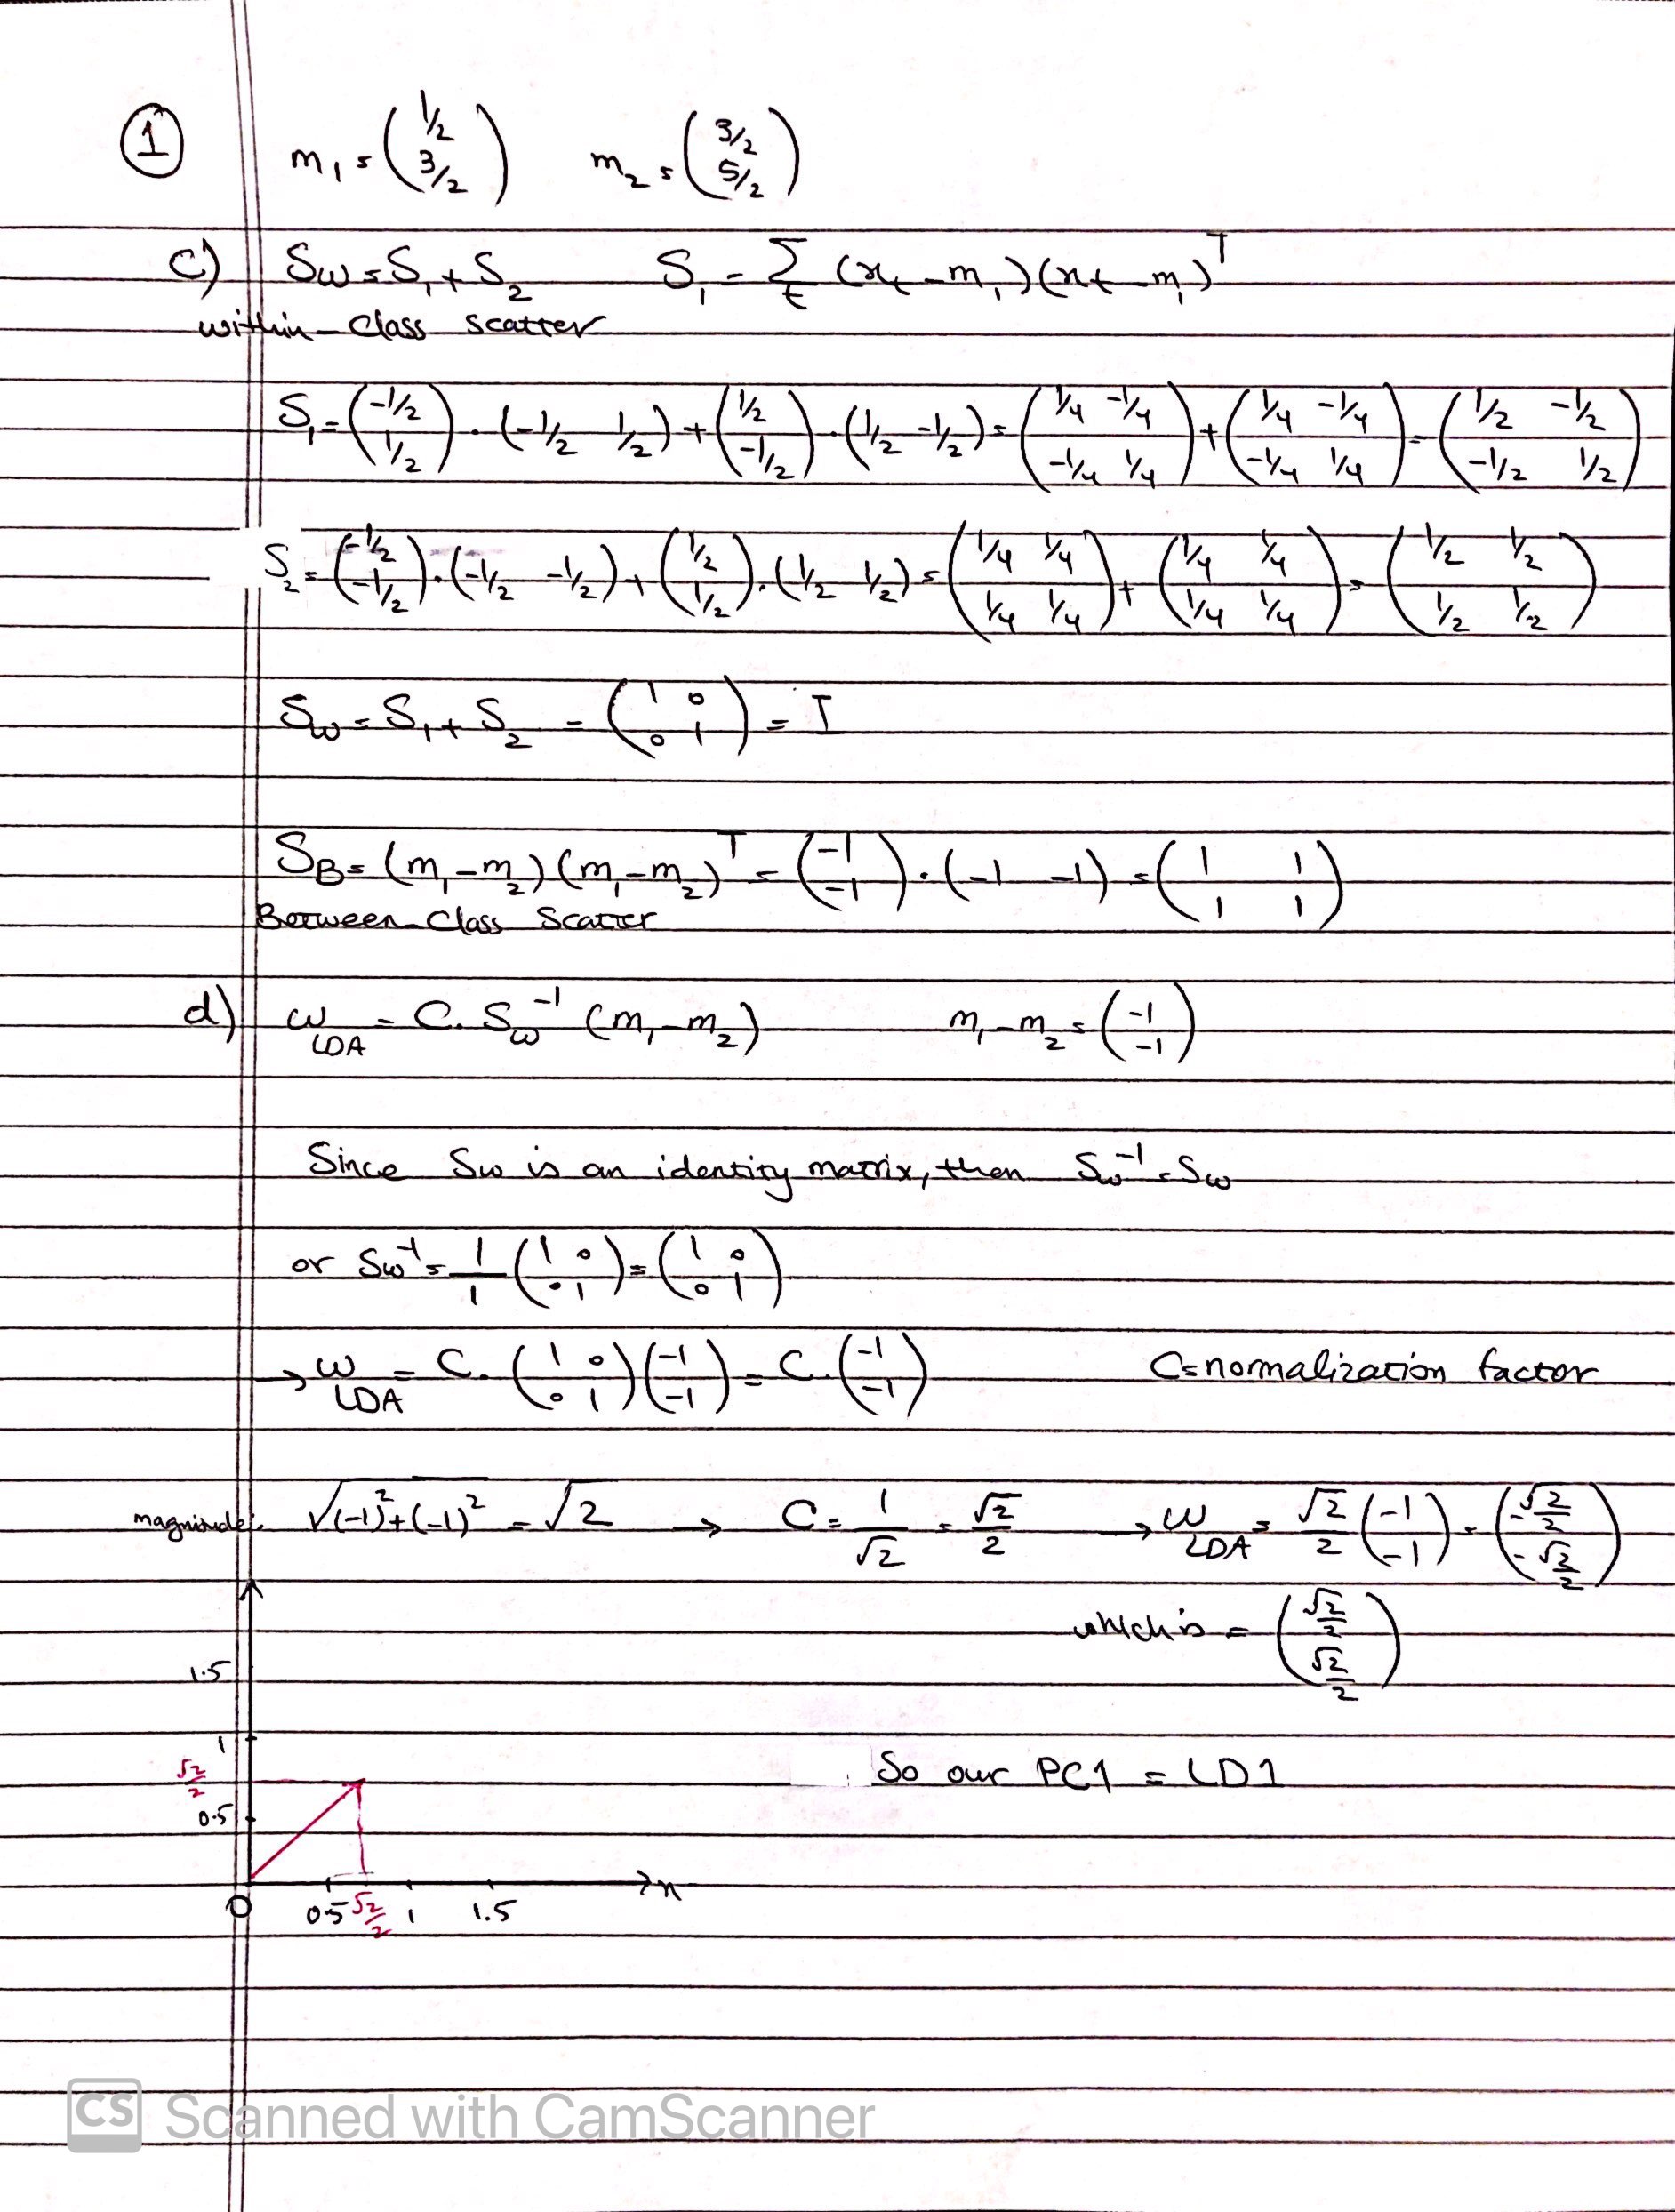 ① m₁ = (1/2 3/2) m₂ = (3/2 5/2)
c) Sw = S₁ + S₂ S₁ = Σt (xt - m₁)(xt - m₁)ᵀ
within-class scatter
S₁ = (-1/2 1/2) . (-1/2 1/2) + (1/2 -1/2) . (1/2 -1/2) = (1/4 -1/4 -1/4 1/4) + (1/4 -1/4 -1/4 1/4) = (1/2 -1/2 -1/2 1/2)
S₂ = (-1/2 -1/2) . (-1/2 -1/2) + (1/2 1/2) . (1/2 1/2) = (1/4 1/4 1/4 1/4) + (1/4 1/4 1/4 1/4) = (1/2 1/2 1/2 1/2)
Sw = S₁ + S₂ = (1 0 0 1) = I
SB = (m₁ - m₂)(m₁ - m₂)ᵀ = (-1 -1) . (-1 -1) = (1 1 1 1)
Between-Class Scatter
d) ω LDA = C. Sω⁻¹ (m₁ - m₂) m₁ - m₂ = (-1 -1)
Since Sω is an identity matrix, then Sω⁻¹ = Sω
or Sω⁻¹ = 1/1 (1 0 0 1) = (1 0 0 1)
→ ω LDA = C. (1 0 0 1)(-1 -1) = C. (-1 -1) C = normalization factor
magnitude: √(-1)² + (-1)² = √2 → C = 1/√2 = √2/2 → ω LDA = √2/2 (-1 -1) = (-√2/2 -√2/2)
which is = (√2/2 √2/2)
1.5
1
√2/2
So our PC1 = LD1
0.5
x
0 0.5 √2/2 1 1.5
CS Scanned with CamScanner